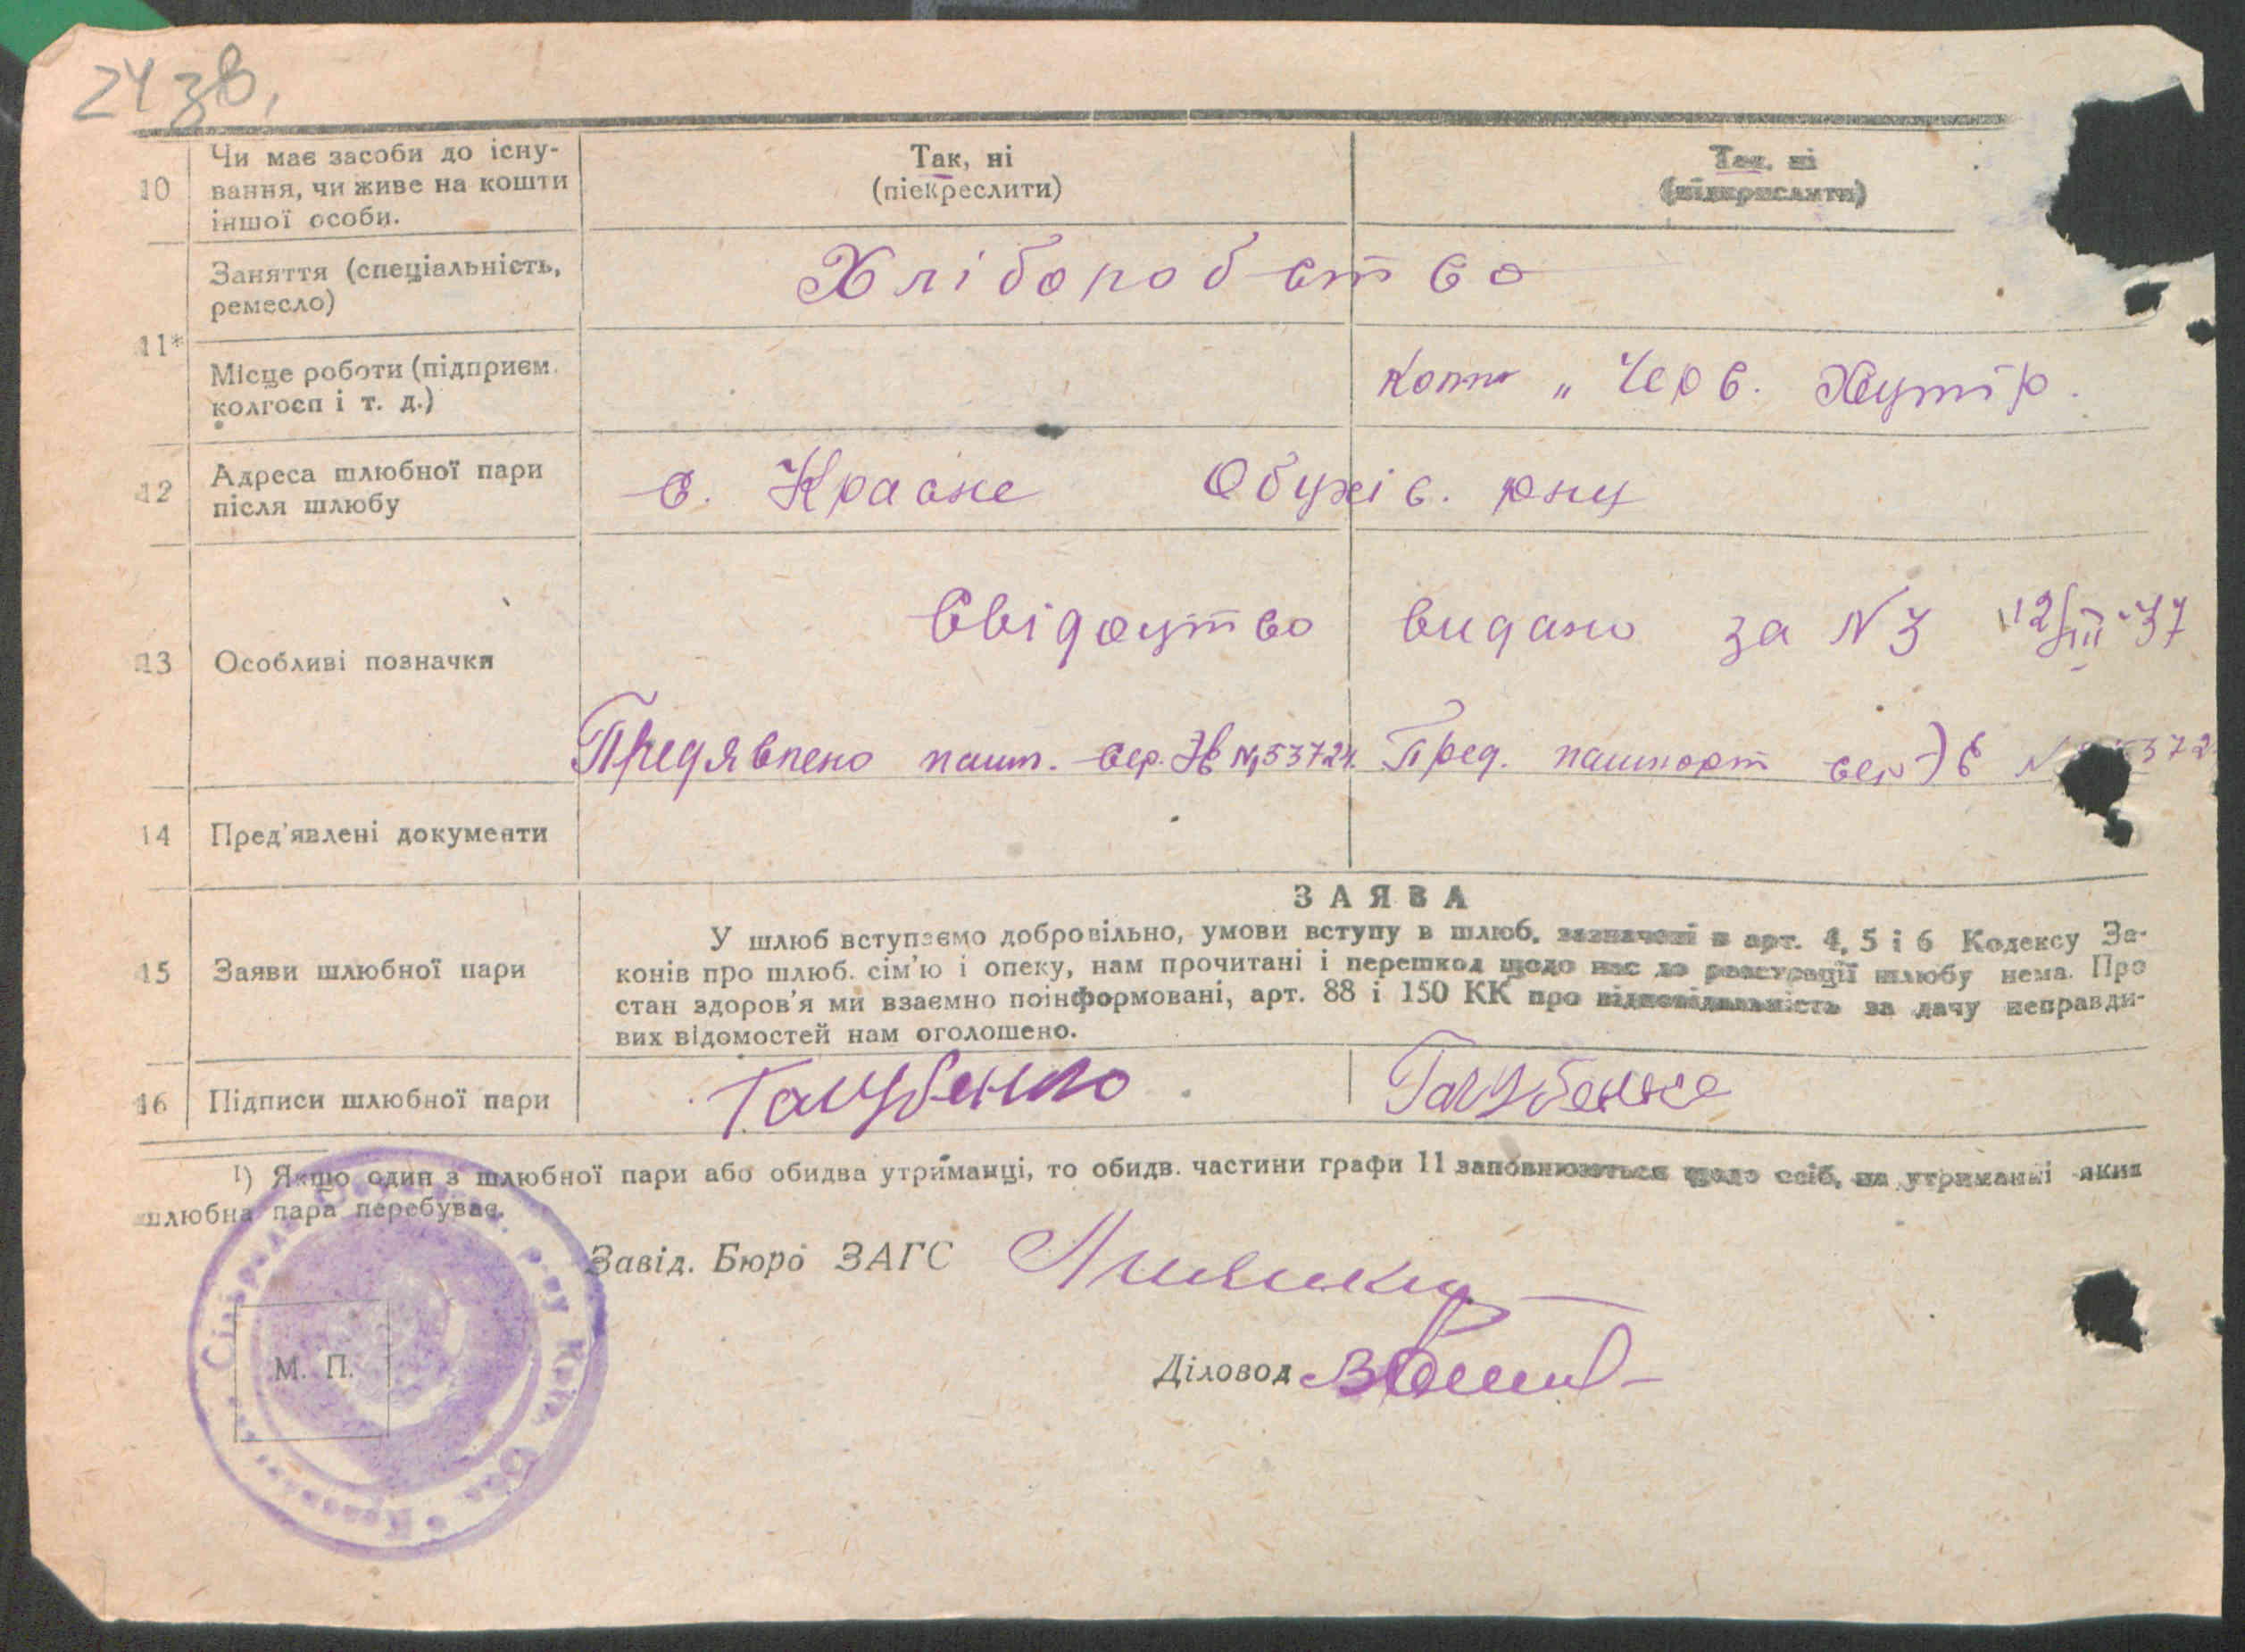 24 зв.
10 Чи має засоби до існу-
вання, чи живе на кошти
іншої особи.
Так, ні
(піекреслити)
Так, ні
(підкреслити)
11* Заняття (спеціальність,
ремесло)
Хліборобство
Місце роботи (підприєм.
колгосп і т. д.)
„ Черв. Хутір.
12 Адреса шлюбної пари
після шлюбу
с. Красне Обухів. р-ну
13 Особливі позначки
Свідоцтво видано за № 3 12/III-37
Предявлено пашп. сер. № 53724
Пред. пашпорт сер.
14 Пред'явлені документи
15 Заяви шлюбної пари
ЗАЯВА
У шлюб вступаємо добровільно, умови вступу в шлюб, зазначені в арт. 4, 5 і 6 Кодексу За-
конів про шлюб. сім'ю і опеку, нам прочитані і перешкод щодо нас до реєстрації шлюбу нема. Про
стан здоров'я ми взаємно поінформовані, арт. 88 і 150 КК про відповідальність за дачу неправди-
вих відомостей нам оголошено.
16 Підписи шлюбної пари
Голубенко
Голубенко
1) Якщо один з шлюбної пари або обидва утриманці, то обидв. частини графи 11 заповнюються щодо осіб, на утриманні яких
шлюбна пара перебуває.
Завід. Бюро ЗАГС
М. П.
Діловод